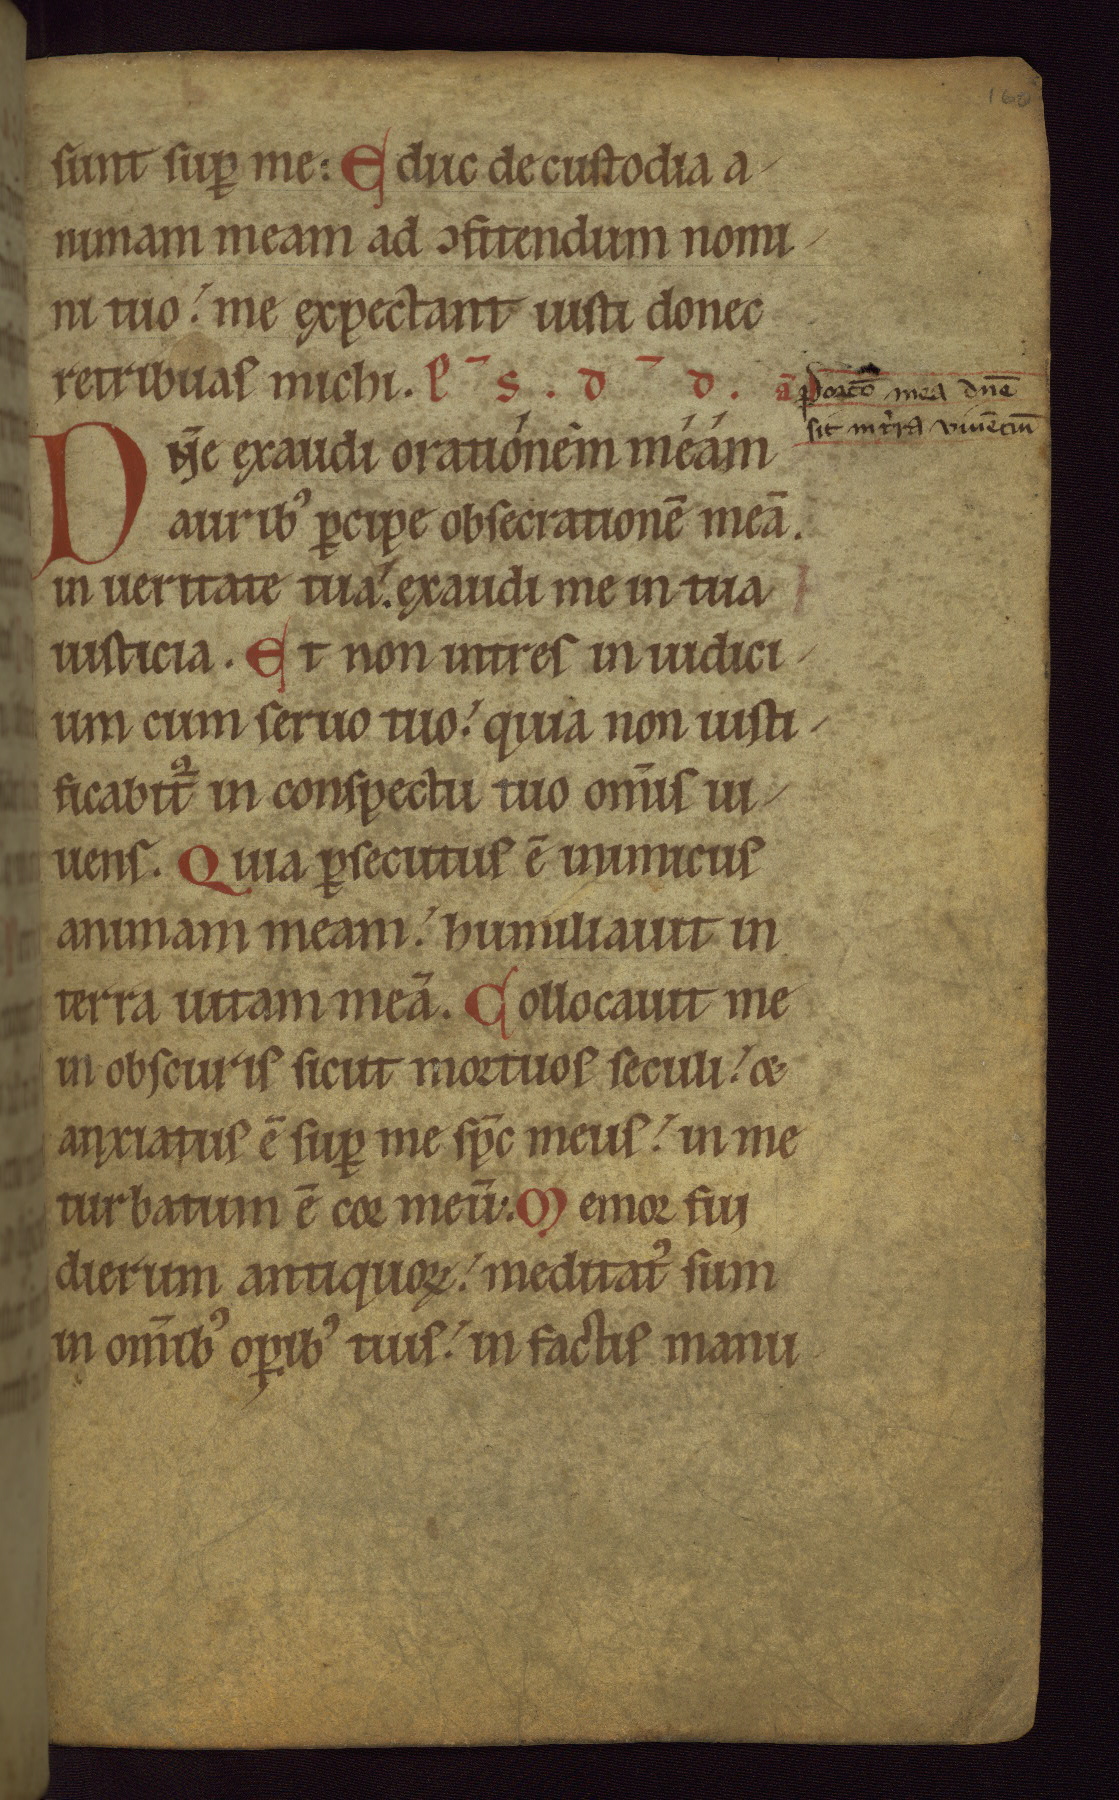 sunt sup me: Educ de custodia a-
nimam meam ad ɔfitendum nomi-
ni tuo! me expectant iusti donec
retribuas michi. p̄ s. d̄ d.
portio mea dn̄e
sit in tr̃a viuẽciũ
Dn̄e exaudi orationem meam
auribꝰ ꝑcipe obsecrationē meā.
in ueritate tua! exaudi me in tua
iusticia. Et non intres in iudici-
um cum seruo tuo! quia non iusti-
ficabit᷑ in conspectu tuo om̄is ui-
uens. Quia ꝑsecutus ē inimicus
animam meam! humiliauit in
terra uitam meā. Collocauit me
in obscuris sicut mortuos seculi! &
anxiatus ē suꝑ me sp̄c meus! in me
turbatum ē cor meū: Memor fui
dierum antiquoꝝ! meditatꝰ sum
in om̄ibꝰ oꝑibꝰ tuis! in factis manu